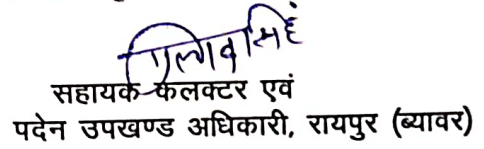 सहायक कलक्टर एवं
पदेन उपखण्ड अधिकारी, रायपुर (ब्यावर)